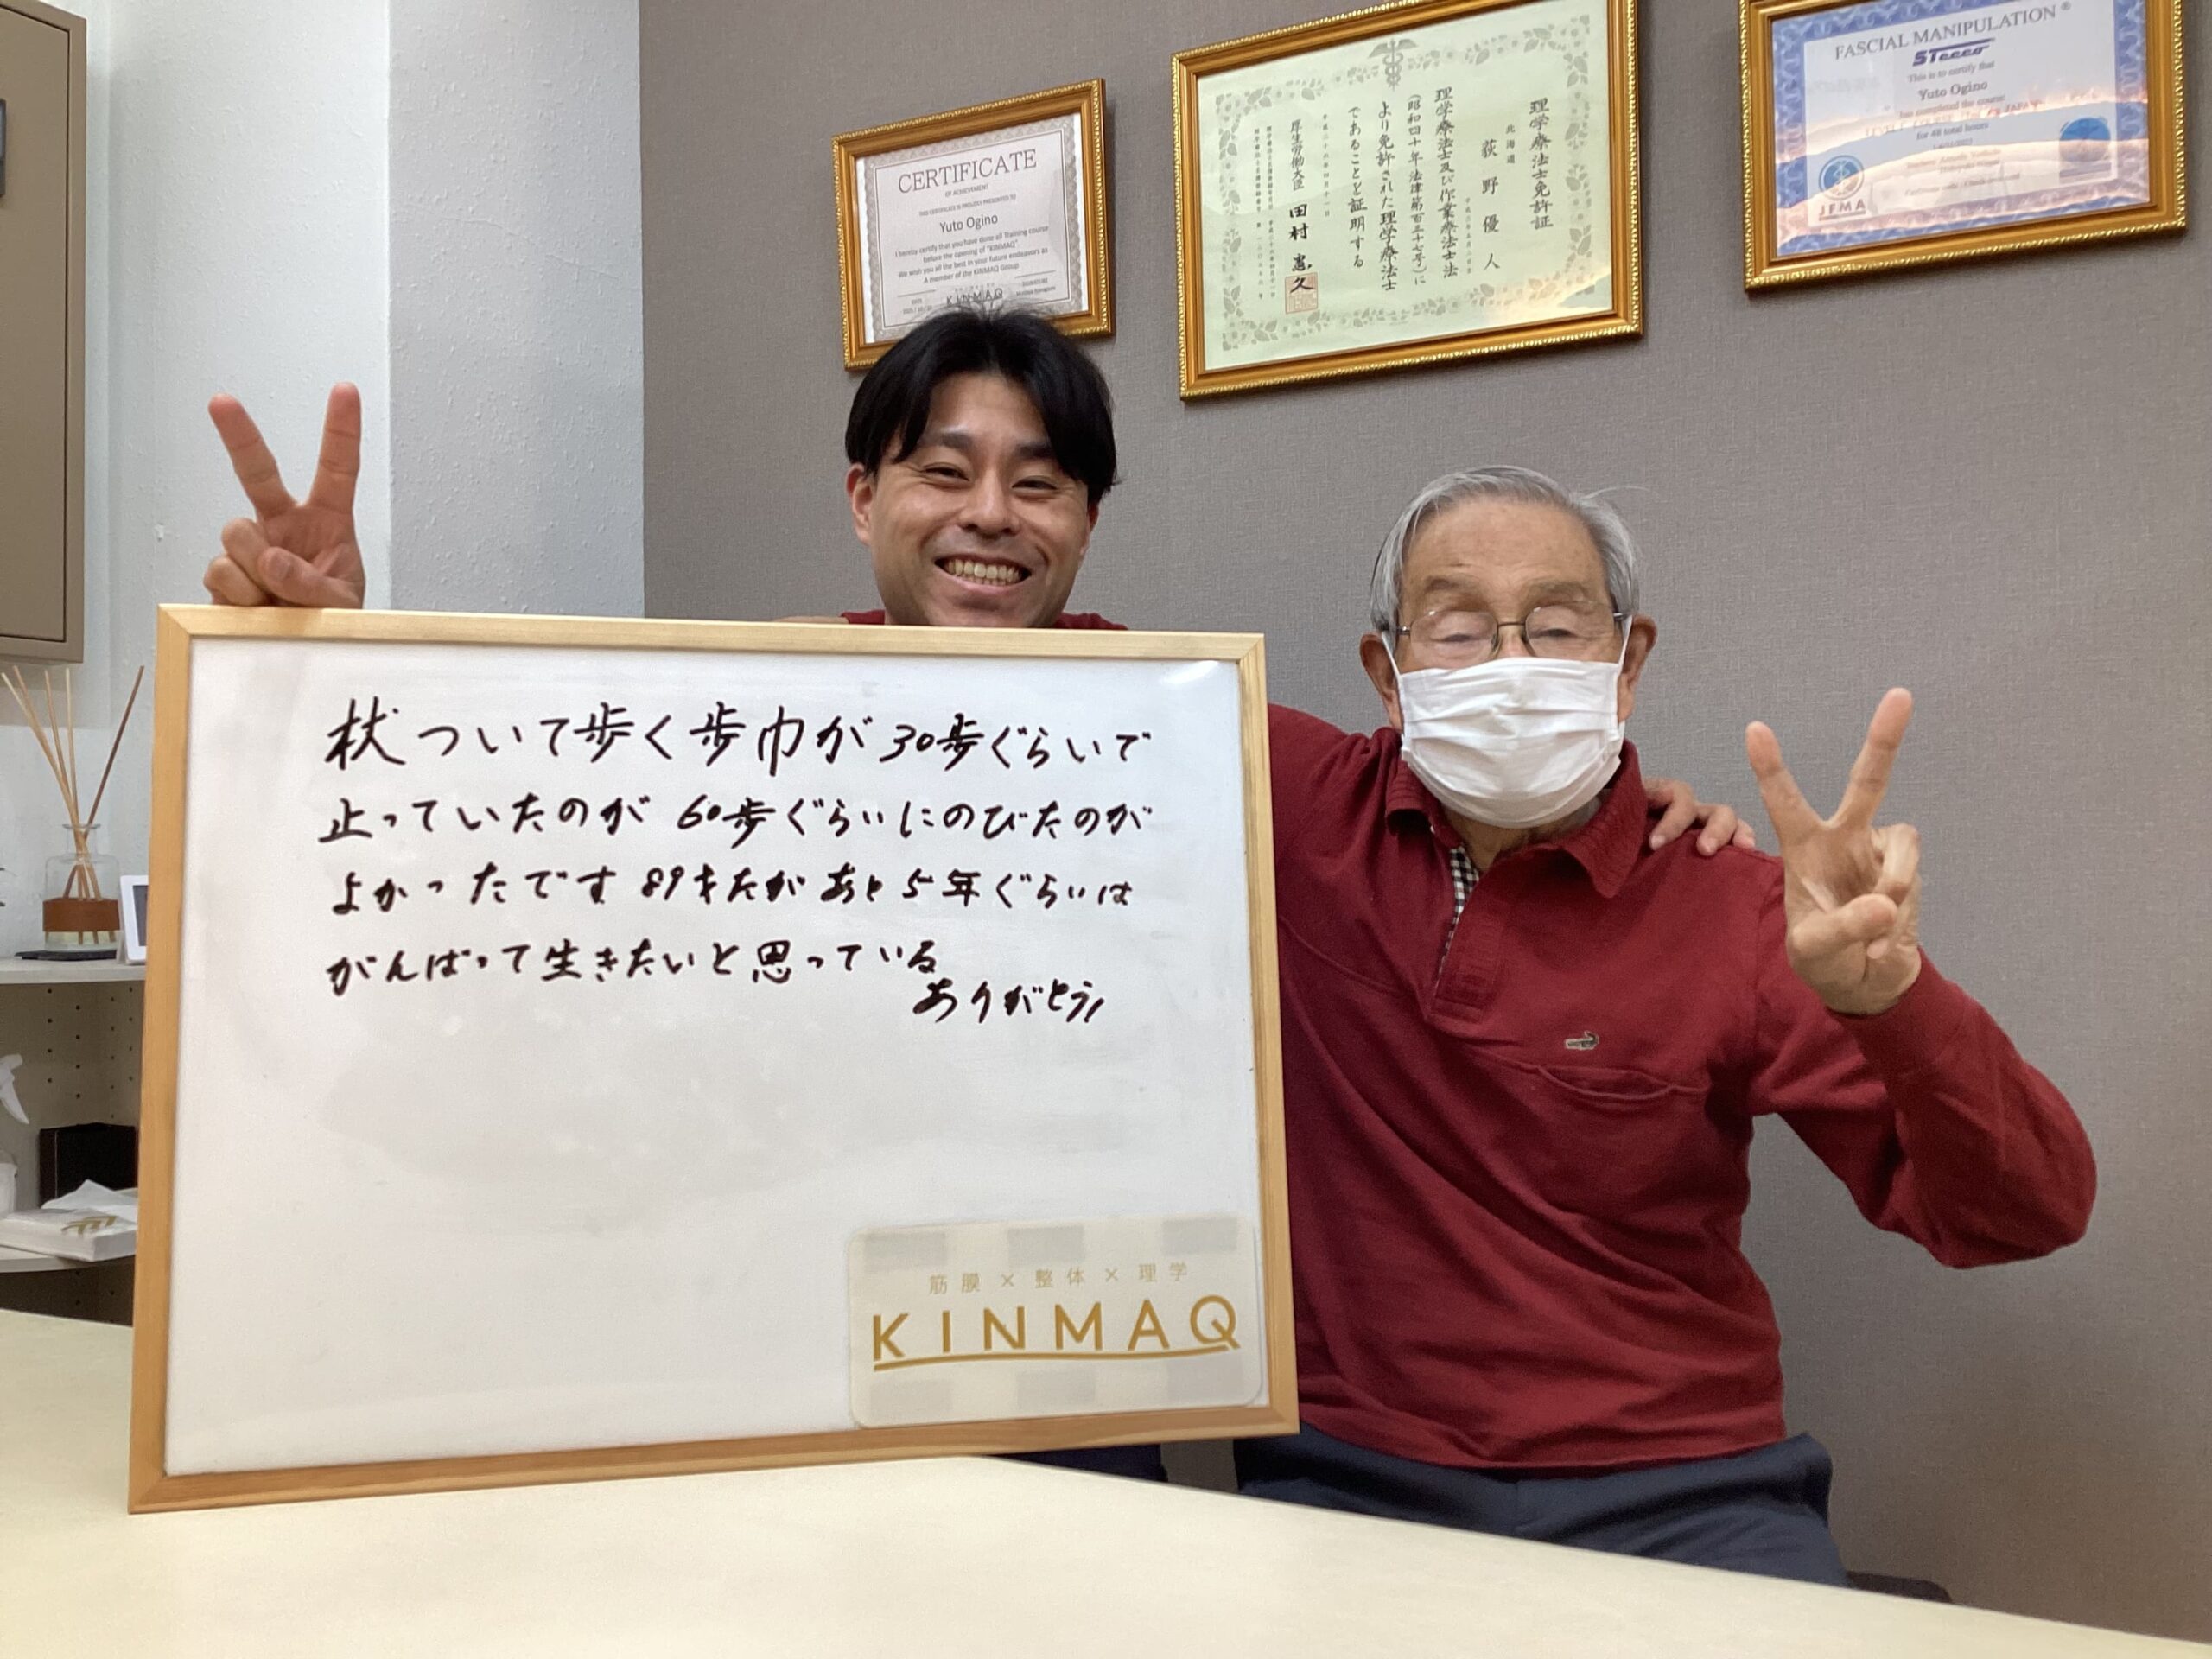 CERTIFICATE
OF ACHIEVEMENT
THIS CERTIFICATE IS PROUDLY PRESENTED TO
Yuto Ogino
I hereby certify that you have done all Training course
before the opening of "KINMAQ".
We wish you all the best in your future endeavors as
A member of the KINMAQ Group
KINMAQ
理学療法士免許証
北海道
荻野優人
理学療法士及び作業療法士法
(昭和四十年法律第百三十七号)に
より免許された理学療法士
であることを証明する
厚生労働大臣 田村憲久
FASCIAL MANIPULATION®
STecco
This is to certify that
Yuto Ogino
has completed the course
for 48 total hours
JFMA
杖ついて歩く歩巾が30歩ぐらいで
止っていたのが60歩ぐらいにのびたのが
よかったです 89才だが あと5年ぐらいは
がんばって生きたいと思っている
ありがとう!
筋膜×整体×理学
KINMAQ